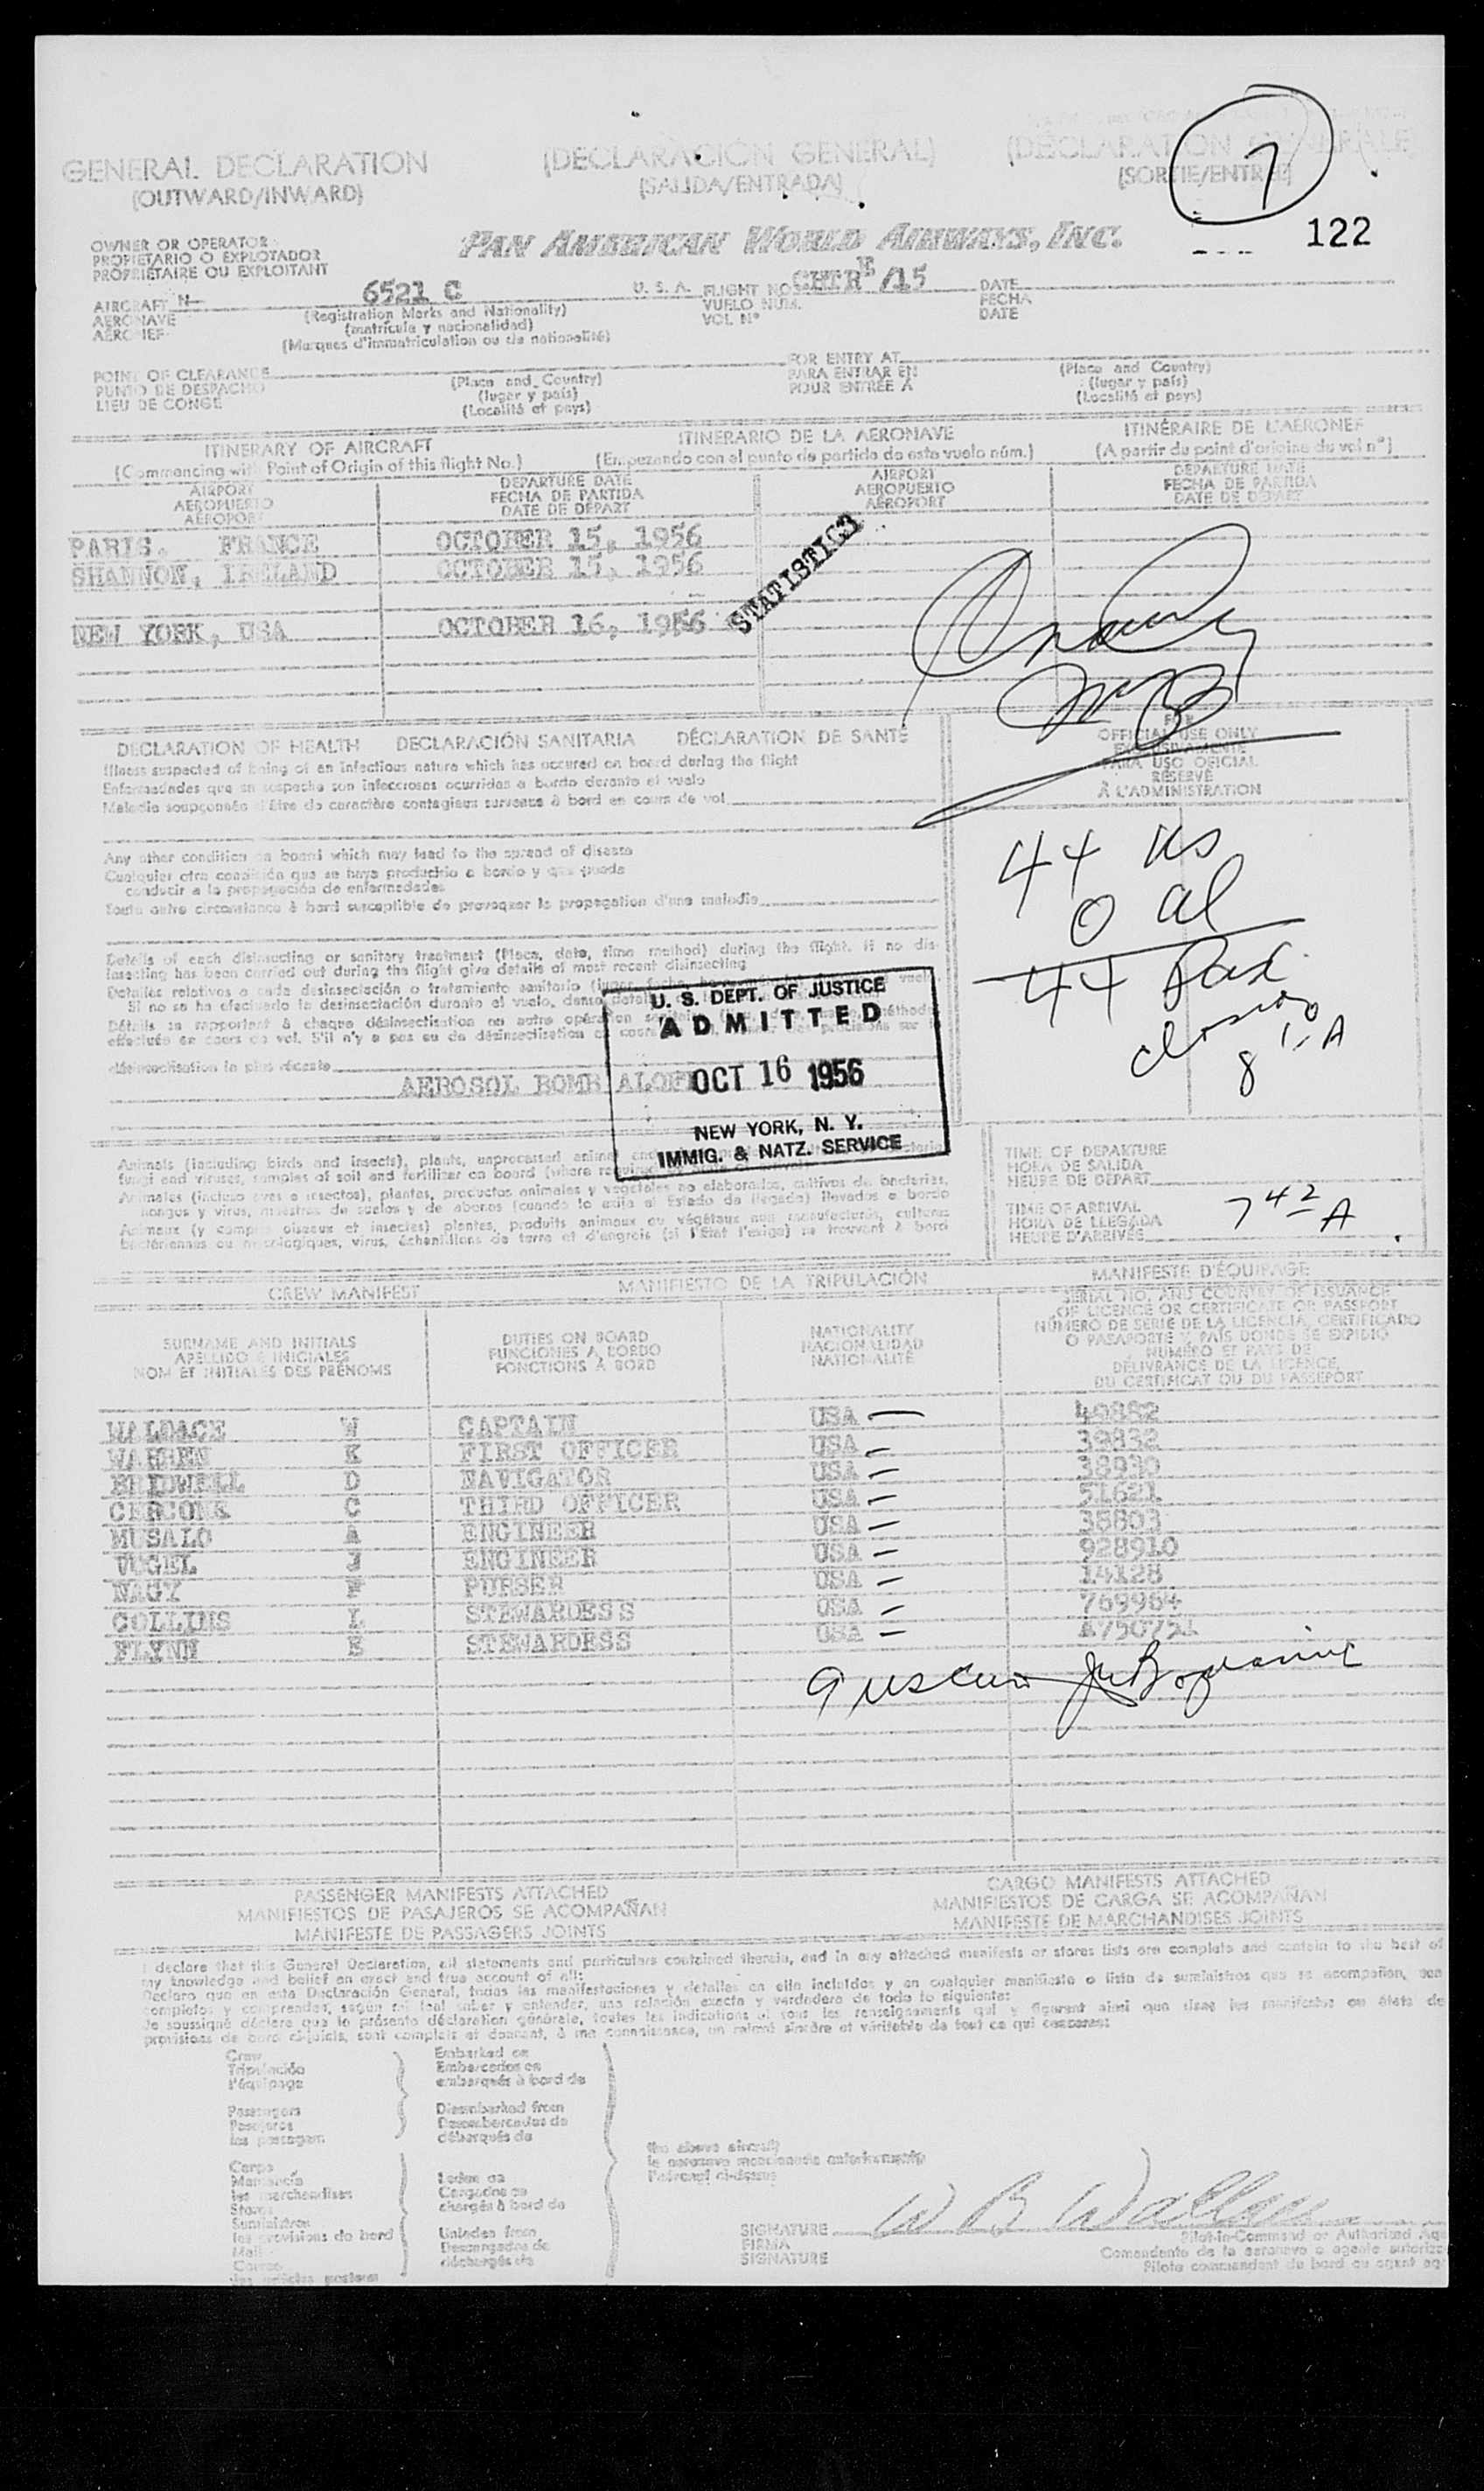 GENERAL DECLARATION (DECLARACIÓN GENERAL) (DÉCLARATION GÉNÉRALE)
(OUTWARD/INWARD) (SALIDA/ENTRADA) (SORTIE/ENTRÉE)
7
122
OWNER OR OPERATOR
PROPIETARIO O EXPLOTADOR
PROPRIÉTAIRE OU EXPLOITANT
PAN AMERICAN WORLD AIRWAYS, INC.
AIRCRAFT N 6521 C U. S. A. FLIGHT NO. CHTR E/15 DATE
AERONAVE (Registration Marks and Nationality) VUELO NUM. FECHA
AÉRONEF (matrícula y nacionalidad) VOL Nº DATE
(Marques d'immatriculation ou de nationalité)
POINT OF CLEARANCE (Place and Country) FOR ENTRY AT (Place and Country)
PUNTO DE DESPACHO (lugar y país) PARA ENTRAR EN (lugar y país)
LIEU DE CONGÉ (Localité et pays) POUR ENTRÉE À (Localité et pays)
ITINERARY OF AIRCRAFT ITINERARIO DE LA AERONAVE ITINÉRAIRE DE L'AÉRONEF
(Commencing with Point of Origin of this flight No.) (Empezando con el punto de partida de este vuelo núm.) (A partir du point d'origine du vol nº)
AIRPORT DEPARTURE DATE AIRPORT DEPARTURE DATE
AEROPUERTO FECHA DE PARTIDA AEROPUERTO FECHA DE PARTIDA
AÉROPORT DATE DE DÉPART AÉROPORT DATE DE DÉPART
PARIS, FRANCE OCTOBER 15, 1956
SHANNON, IRELAND OCTOBER 15, 1956
NEW YORK, USA OCTOBER 16, 1956
STATISTICS
DECLARATION OF HEALTH DECLARACIÓN SANITARIA DÉCLARATION DE SANTÉ
FOR
OFFICIAL USE ONLY
EXCLUSIVAMENTE
PARA USO OFICIAL
RÉSERVÉ
À L'ADMINISTRATION
Illness suspected of being of an infectious nature which has occured on board during the flight
Enfermedades que se sospecha son infecciosas ocurridas a bordo durante el vuelo
Maladie soupçonnée d'être de caractère contagieux survenue à bord en cours de vol
Any other condition on board which may lead to the spread of disease
Cualquier otra condición que se haya producido a bordo y que pueda
conducir a la propagación de enfermedades
Toute autre circonstance à bord susceptible de provoquer la propagation d'une maladie
44 us
0 al
44 Pax
8 A
Details of each disinsecting or sanitary treatment (Place, date, time method) during the flight. If no dis-
insecting has been carried out during the flight give details of most recent disinsecting
Detalles relativos a cada desinsectación o tratamiento sanitario
Si no se ha efectuado la desinsectación durante el vuelo,
Détails se rapportant à chaque désinsectisation ou autre opération
effectuée en cours de vol. S'il n'y a pas eu de désinsectisation
désinsectisation la plus récente
AEROSOL BOMB
U. S. DEPT. OF JUSTICE
ADMITTED
OCT 16 1956
NEW YORK, N. Y.
IMMIG. & NATZ. SERVICE
Animals (including birds and insects), plants, unprocessed
fungi and viruses, samples of soil and fertilizer on board
Animales (incluso aves e insectos), plantas, productos animales y vegetales no elaborados, cultivos de bacterias,
hongos y virus, muestras de suelos y de abonos (cuando lo exija el Estado de llegada) llevados a bordo
Animaux (y compris oiseaux et insectes) plantes, produits animaux ou végétaux non manufacturés, cultures
bactériennes ou mycologiques, virus, échantillons de terre et d'engrais (si l'État l'exige) se trouvant à bord
TIME OF DEPARTURE
HORA DE SALIDA
HEURE DE DÉPART
TIME OF ARRIVAL
HORA DE LLEGADA 7 42 A
HEURE D'ARRIVÉE
CREW MANIFEST MANIFIESTO DE LA TRIPULACIÓN MANIFESTE D'ÉQUIPAGE
SURNAME AND INITIALS
APELLIDO E INICIALES
NOM ET INITIALES DES PRÉNOMS
DUTIES ON BOARD
FUNCIONES A BORDO
FONCTIONS À BORD
NATIONALITY
NACIONALIDAD
NATIONALITÉ
SERIAL NO. AND COUNTRY OF ISSUANCE
OF LICENCE OR CERTIFICATE OR PASSPORT
NÚMERO DE SERIE DE LA LICENCIA, CERTIFICADO
O PASAPORTE Y PAÍS DONDE SE EXPIDIÓ
NUMÉRO ET PAYS DE
DÉLIVRANCE DE LA LICENCE,
DU CERTIFICAT OU DU PASSEPORT
W CAPTAIN USA 40882
WARREN K FIRST OFFICER USA 39832
BRIDWELL D NAVIGATOR USA 38930
C THIRD OFFICER USA 51621
MUSALO A ENGINEER USA 38803
VOGEL J ENGINEER USA 928910
NAGY F PURSER USA 14128
COLLINS L STEWARDESS USA 769964
FLYNN E STEWARDESS USA
PASSENGER MANIFESTS ATTACHED CARGO MANIFESTS ATTACHED
MANIFIESTOS DE PASAJEROS SE ACOMPAÑAN MANIFIESTOS DE CARGA SE ACOMPAÑAN
MANIFESTE DE PASSAGERS JOINTS MANIFESTE DE MARCHANDISES JOINTS
I declare that this General Declaration, all statements and particulars contained therein, and in any attached manifests or stores lists are complete and contain to the best of
my knowledge and belief an exact and true account of all:
Declaro que en esta Declaración General, todas las manifestaciones y detalles en ella incluidos y en cualquier manifiesto o lista de suministros que se acompañen, son
completos y comprenden, según mi leal saber y entender, una relación exacta y verdadera de todo lo siguiente:
Je soussigné déclare que la présente déclaration générale, toutes les indications et tous les renseignements qui y figurent ainsi que dans les manifestes ou états de
provisions de bord ci-joints, sont complets et donnent, à ma connaissance, un relevé sincère et véritable de tout ce qui concerne:
Crew
Tripulación
l'équipage
Passengers
Pasajeros
les passagers
Cargo
Mercancía
les marchandises
Stores
Suministros
les provisions de bord
Mail
Correo
les articles postaux
Embarked on
Embarcados en
embarqués à bord de
Disembarked from
Desembarcados de
débarqués de
Laden on
Cargados en
chargés à bord de
Unladen from
Descargados de
déchargés de
the above aircraft
la aeronave mencionada anteriormente
l'aéronef ci-dessus
SIGNATURE W B Wallace
FIRMA
SIGNATURE
Pilot-in-Command or Authorized Age
Comandante de la aeronave o agente autoriza
Pilote commandant de bord ou agent ag